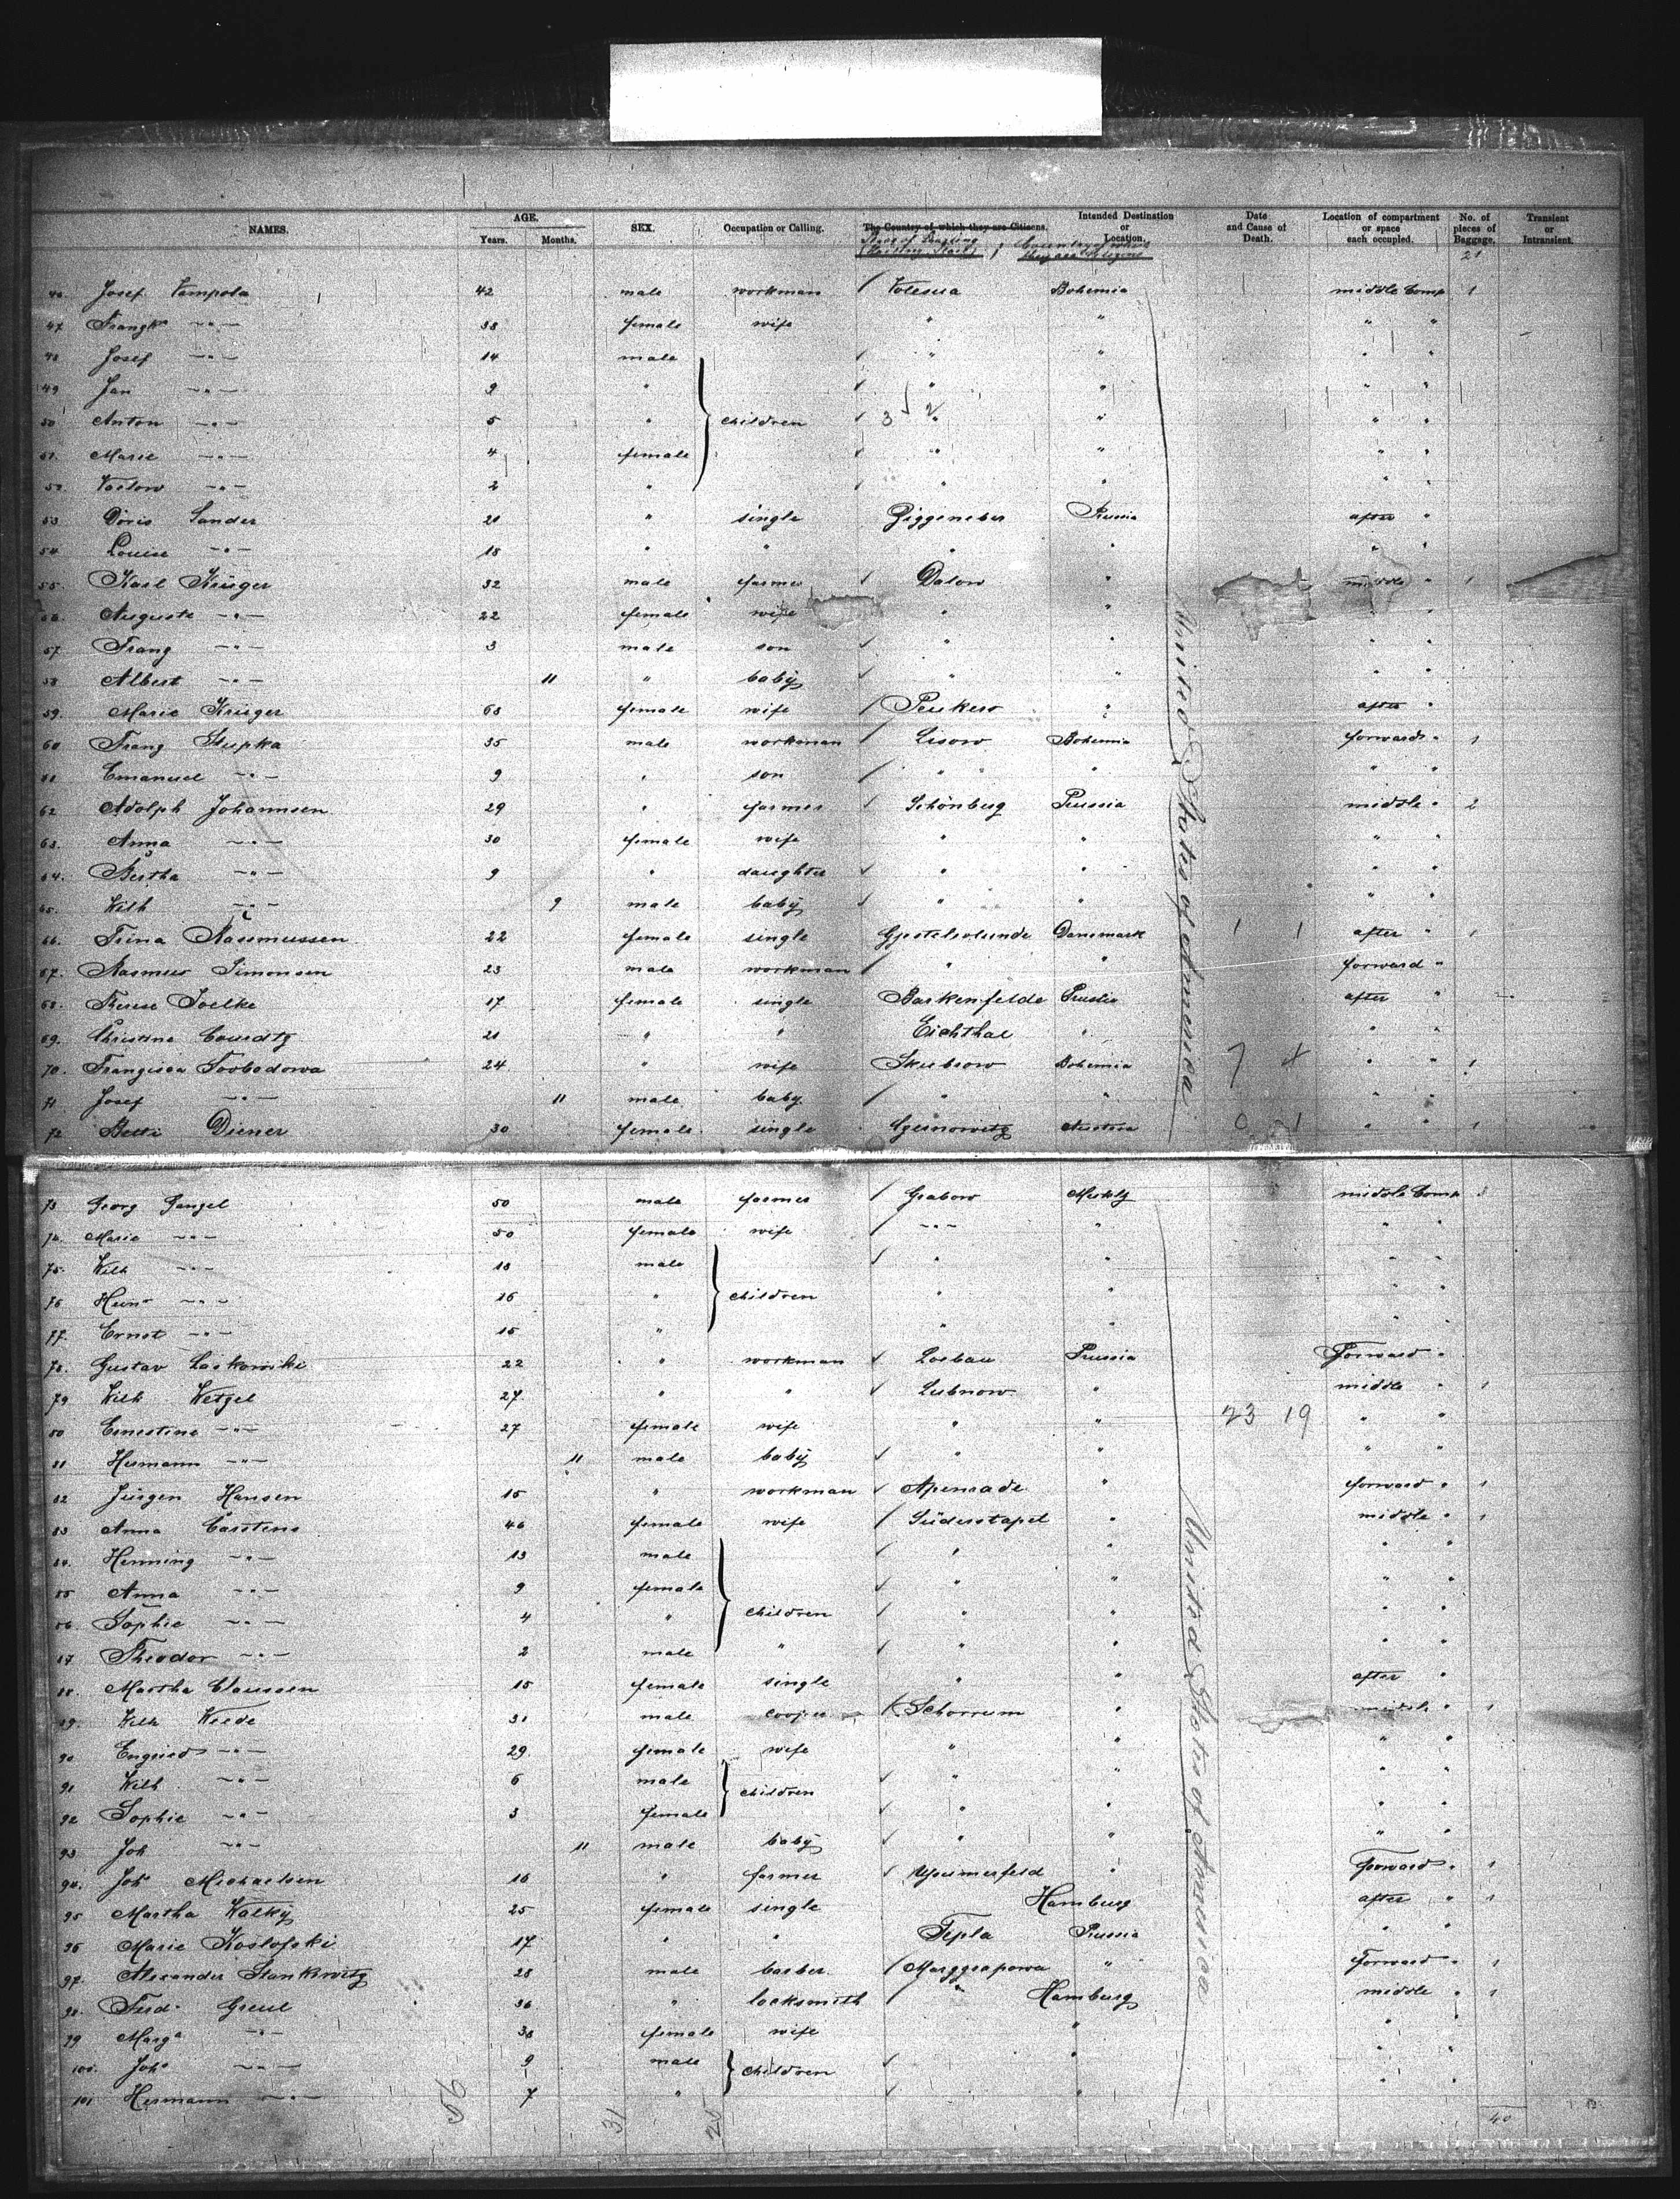 NAMES. AGE. Years. Months. SEX. Occupation or Calling. The Country of which they are Citizens. Intended Destination or Location. Date and Cause of Death. Location of compartment or space each occupied. No. of pieces of Baggage. Transient or Intransient.
Country of which they are Citizens 21
46 Josef Vampola 42 male workman Volesna Bohemia middle Comp 1
47 38 female wife " " " "
48 Josef -"- 14 male " " " "
49 Jan -"- 9 " " " " "
50 Anton -"- 5 " children " " " "
51. Marie -"- 4 female " " " "
52. -"- 2 " " " " "
53 Doris Sander 21 " single Prussia after "
54 Louise -"- 18 " " " " " "
55. Karl Krüger 32 male farmer Dalow " middle " 1
56. Auguste -"- 22 female wife " " "
57 Franz -"- 3 male son " " " "
58 Albert -"- 11 " baby " " " "
59. Marie Krüger 63 female wife " after "
60 Franz Stupka 35 male workman Lisow Bohemia forward " 1
61 Emanuel -"- 9 " son " " " "
62 Adolph Johannsen 29 " farmer Schönberg Prussia middle " 2
63. Anna -"- 30 female wife " " " "
64. Bertha -"- 9 " daughter " " " "
65. Wilh -"- 9 male baby " " " "
66. Trina Rasmussen 22 female single Danemark 1 1 after " 1
67. Rasmus Simonsen 23 male workman " " forward "
68. 17 female single Barkenfelde Prussia after "
69. Christine 21 " " Eichthal " " "
70. 24 " wife Skubrow Bohemia 7 4 " " 1
71 Josef -"- 11 male baby " " " "
72 Betti Diener 30 female single Czernowitz Austria 0 1 " " 1
73 Georg Gangel 50 male farmer Grabow Mcklg middle Comp
74. Marie -"- 50 female wife -"- " " "
75. Wilh -"- 18 male " " " "
76 -"- 16 " children " " " "
77. Ernst -"- 15 " " " " "
78. Gustav Laskowski 22 " workman Loebau Prussia Forward "
79 Wilh Wetzel 27 " " Lubnow " middle " 1
80 Ernestine -"- 27 female wife " " 23 19 " "
81 Hermann -"- 11 male baby " " " "
82 Jürgen Hansen 15 " workman Apenrade " forward " 1
83 Anna Carstens 46 female wife Süderstapel " middle " 1
84. Henning -"- 13 male " " " "
85 Anna -"- 9 female " " " "
86. Sophie -"- 4 " children " " " "
87 Theodor -"- 2 male " " " " "
88. Martha Claussen 15 female single " " after "
89. Wilh Weede 31 male cooper " middle " 1
90 -"- 29. female wife " " " "
91 Wilh -"- 6 male children " " " "
92 Sophie -"- 3 female " " " "
93 Joh -"- 11 male baby " " " "
94. Joh Michaelsen 16 " farmer " Forward " 1
95 Martha 25 female single Hamburg after " 1
96 Marie Koslofski 17 " " Tepla Prussia " "
97. Alexander Stankiwitz 28 male barber. Marggrapowa " Forward " 1
98. Ferd. Greul 36 " locksmith Hamburg middle " 1
99 Marga -"- 38 female wife " " "
100. Joh. -"- 9 male children " " "
101 Hermann -"- 7 " " " "
United States of America
United States of America
31 40